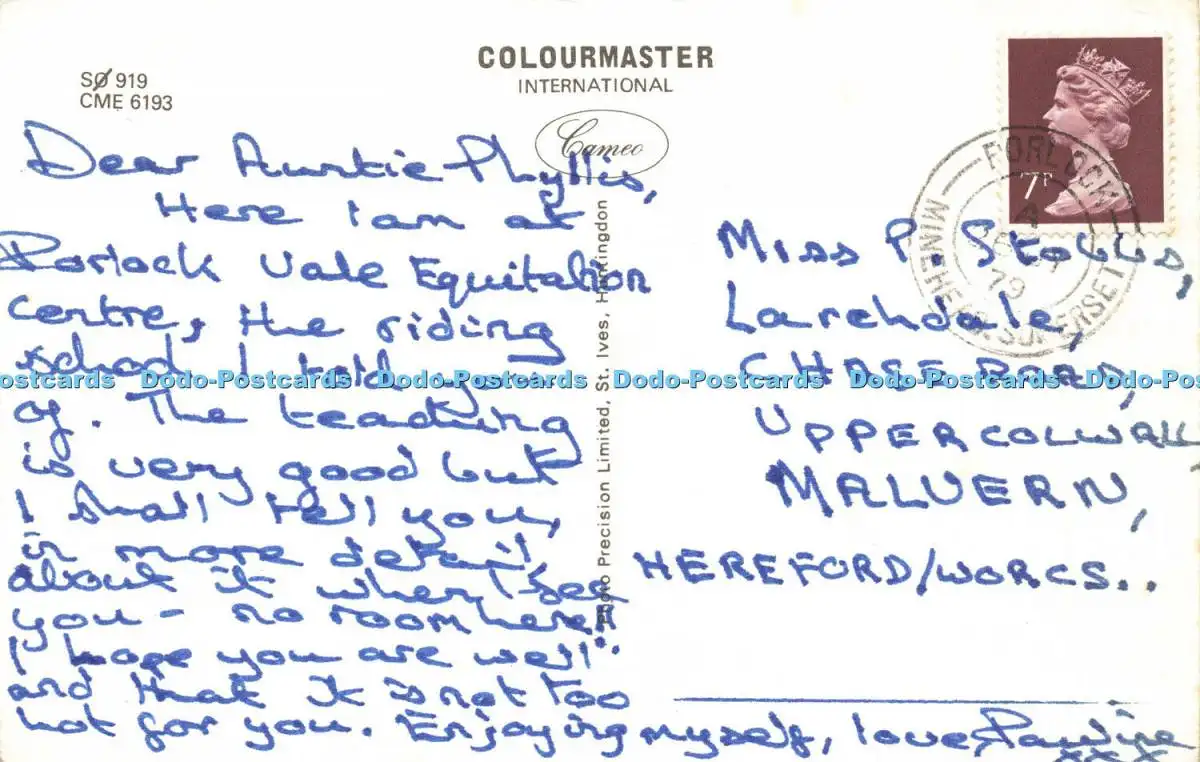 SØ 919
CME 6193
COLOURMASTER
INTERNATIONAL
Cameo
Photo Precision Limited, St. Ives, Huntingdon
7P
PORLOCK
MINEHEAD. SOMERSET
79
Dear Auntie Phyllis,
Here I am at
Porlock Vale Equitation
Centre, the riding
school I told you
of. The teaching
is very good but
I shall tell you,
in more detail,
about it when I see
you - no room here!!
I hope you are well
and that it is not too
hot for you. Enjoying myself, love, Pauline
xxx
Miss P. Stollis,
Larchdale,
CHASE ROAD,
UPPER COLWALL
MALVERN,
HEREFORD/WORCS..
Dodo-Postcards Dodo-Postcards Dodo-Postcards Dodo-Postcards Dodo-Postcards